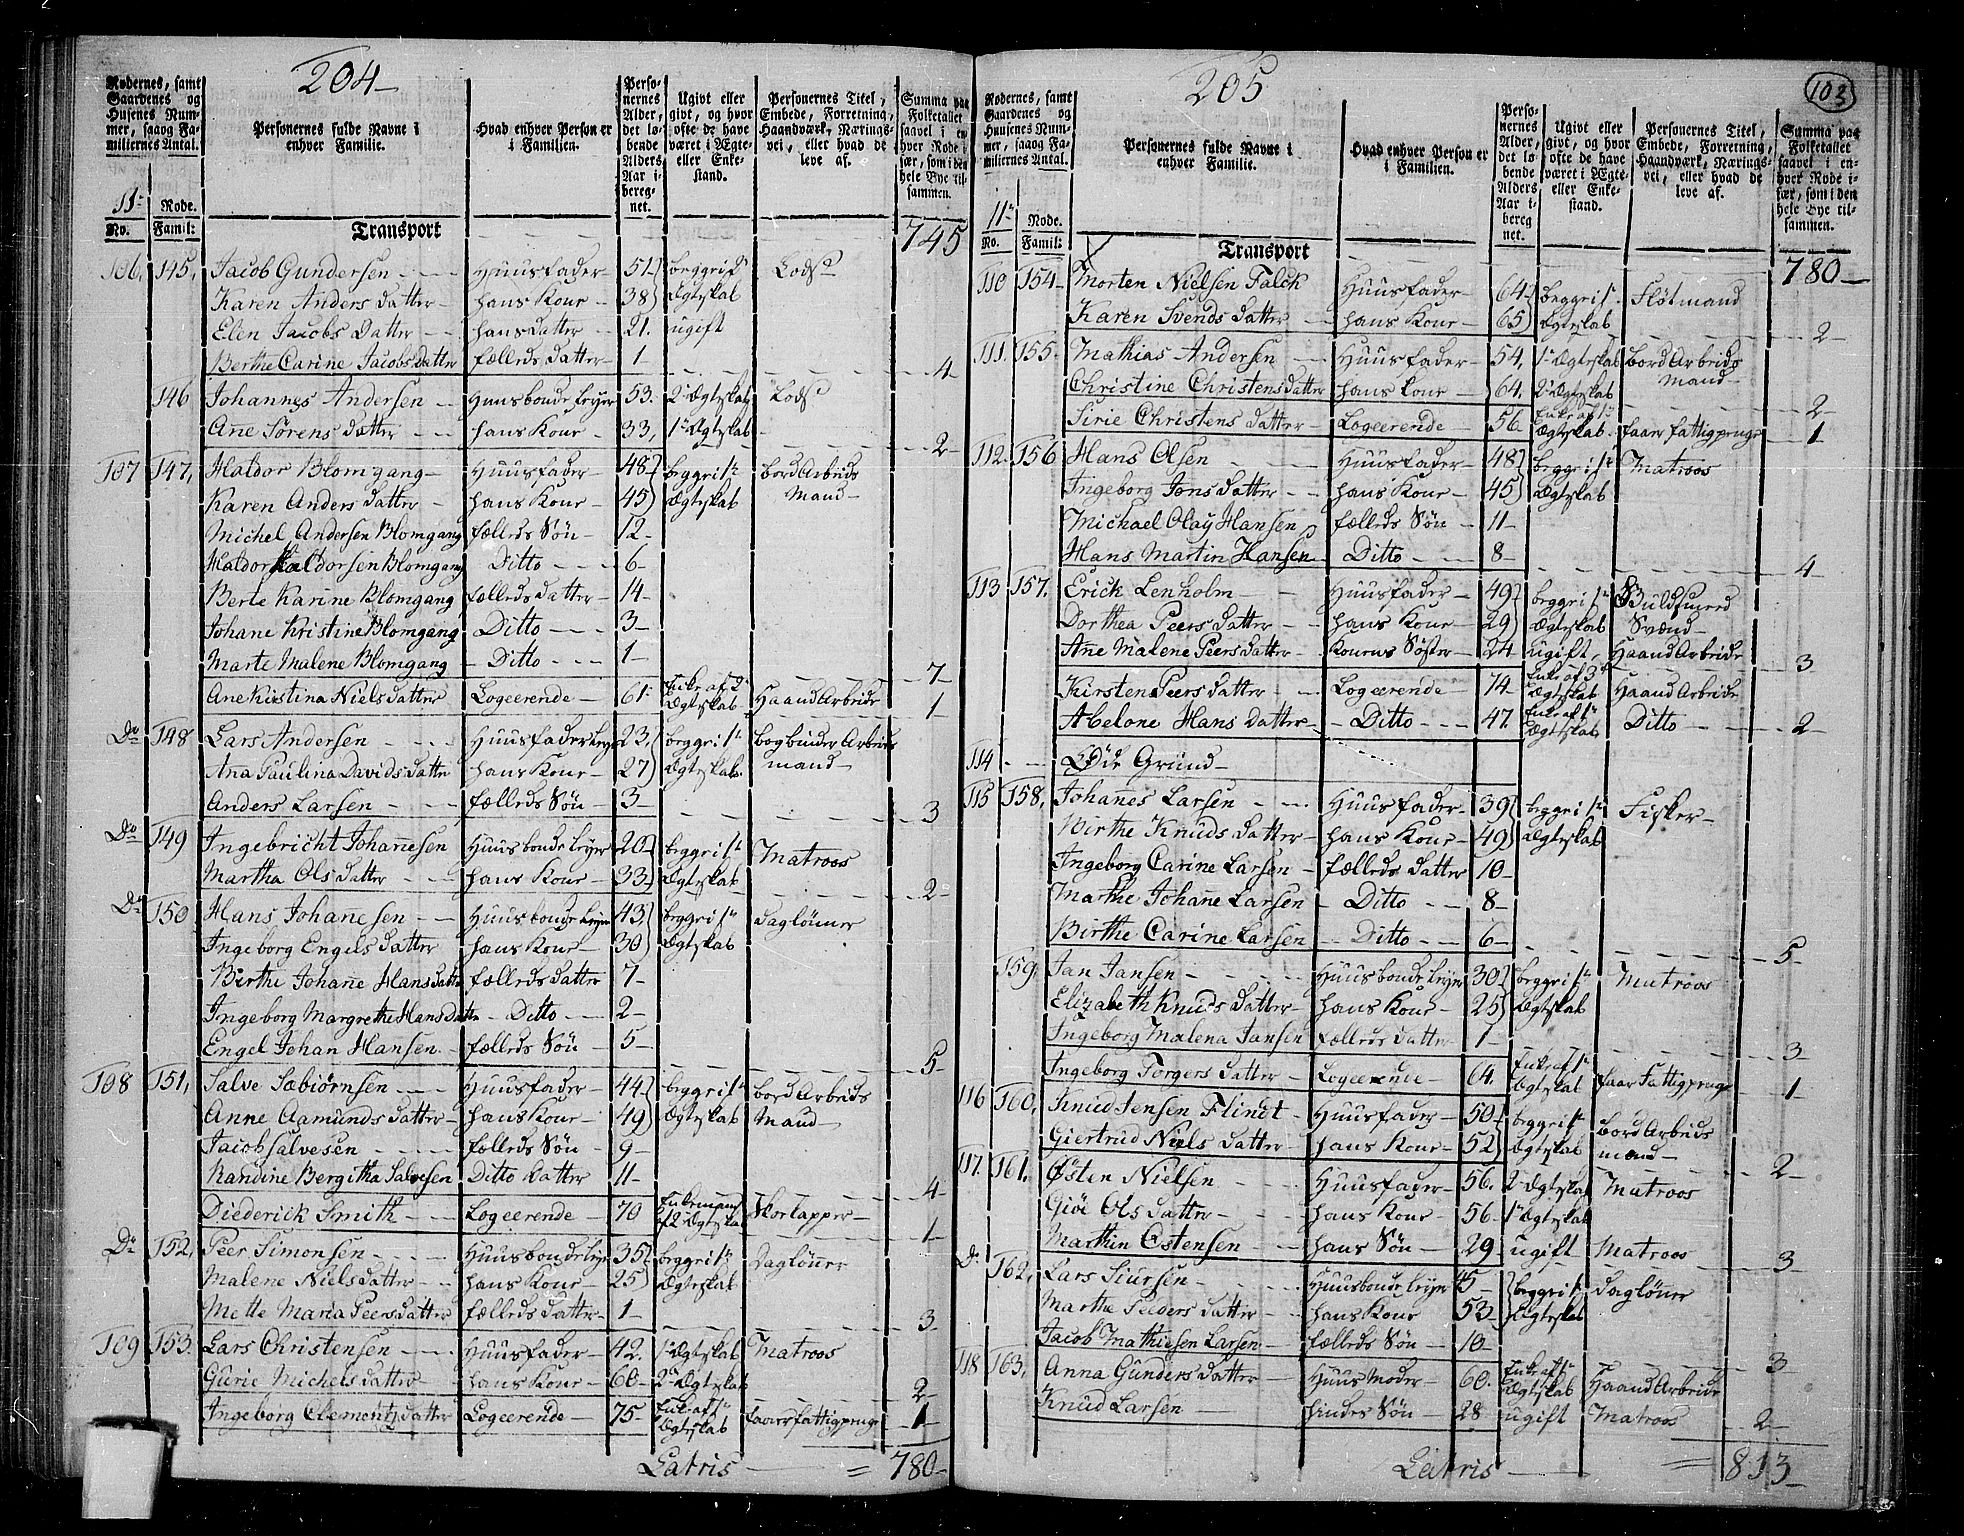 204
Rodernes, samt Gaardenes og Husenes Nummer, saaog Familiernes Antal.
Personernes fulde Navne i enhver Familie.
Hvad enhver Person er i Familien.
Personernes Alder, det løbende Alders Aar iberegnet.
Ugivt eller givt, og hvor ofte de have været i Ægte- eller Enkestand.
Personernes Titel, Embede, Forretning, Haandværk, Næringsvei, eller hvad de leve af.
Summa paa Folketallet saavel i enhver Rode især, som i den hele Bye tilsammen.
11te Rode.
No. Famil:
Transport 745
106, 145, Jacob Gundersen Huusfader 51 begge i 1te Lods
Karen Anders datter hans Kone 38 Ægteskab
Elen Jacobs Datter hans datter 21. ugift
Berthe Carine Jacobsdatter fælleds datter 1 4
146 Johannes Andersen Huusbonde leyer 53. 2de Ægteskab Lods
Ane Sørens datter hans Kone 33, 1te Ægteskab 2
107 147, Haldor Blomgang Huusfader 48 begge i 1te bord Arbeids
Karen Anders datter hans Kone 45 Ægteskab Mand
Michel Andersen Blomgang fælleds Søn 12
Haldor Haldorsen Blomgang Ditto 6
Berte Karine Blomgang fælleds datter 14
Johane Kristine Blomgang Ditto 3
Marte Malene Blomgang Ditto 1 7
Ane Kistina Niels datter Logeerende 61 Enke af 2det Ægteskab Haand Arbeide 1
Do 148 Lars Andersen Huusfader leyer 23, begge i 1te bogbinder Arbeids
Ana Paulina Davids datter hans Kone 27 Ægteskab mand
Anders Larsen fælleds Søn 3 3
Do 149 Ingebricht Johanesen Huusbonde leyer 20 begge i 1te Matroos
Martha Ols datter hans Kone 33 Ægteskab 2
Do 150 Hans Johanesen Huusbonde leyer 43 begge i 1te Dagløner
Ingeborg Engels datter hans Kone 30 Ægteskab
Birthe Johane Hans datter fælleds datter 7
Ingeborg Margrethe Hans datter Ditto 2
Engel Johan Hansen fælleds Søn 5 5
108 151, Salve Sæbiørnsen Huusfader 44 begge i 1te bord Arbeids
Anne Aamunds datter hans Kone 49 Ægteskab Mand
Jacob Salvesen fælleds Søn 9
Randine Bergitha Salvesen Ditto datter 11 4
Diederick Smith Logeerende 70 Enkemand af 2 Ægteskab Skorlapper 1
Do 152, Peer Simonsen Huusbonde leyer 35 begge i 1te Dagløner
Malene Niels datter hans Kone 25 Ægteskab
Mette Maria Peers datter fælleds datter 1 3
109 153. Lars Christensen Huusfader 42. 1te Ægteskab Matroos
Gurie Michels datter hans Kone 60 2de Ægteskab 2
Ingeborg Clementz datter Logeerende 75 Enke af 1te Ægteskab faaer fattigpenge 1
Latris = 780
103
205
Rodernes, samt Gaardenes og Husenes Nummer, saaog Familiernes Antal.
Personernes fulde Navne i enhver Familie.
Hvad enhver Person er i Familien.
Personernes Alder, det løbende Alders Aar iberegnet.
Ugivt eller givt, og hvor ofte de have været i Ægte- eller Enkestand.
Personernes Titel, Embede, Forretning, Haandværk, Næringsvei, eller hvad de leve af.
Summa paa Folketallet saavel i enhver Rode især, som i den hele Bye tilsammen.
11te Rode.
No. Famil:
Transport 780
110 154 Morten Nielsen Falck Huusfader 64 begge i 1te Fløtmand
Karen Svends datter hans Kone 65 Ægteskab 2
111. 155. Mathias Andersen Huusfader 54, 1te Ægteskab bord Arbeids
Christine Christens datter hans kone 64. 2de Ægteskab mand 2
Sirie Christens datter Logeerende 56 Enke af 1te Ægteskab. faaer fattigpenge 1
112 156 Hans Olsen Huusfader 48 begge i 1te Matroos
Ingeborg Jons datter hans Kone 45 Ægteskab
Michael Olay Hansen fælleds Søn 11
Hans Martin Hansen Ditto 8 4
113 157. Erick Lenholm Huusfader 49 begge i 1te Guldsmed
Dorthea Peers datter hans Kone 29 Ægteskab Svend
Ane Malene Peers datter Konens Søster 24 ugift, Haand Arbeide 3
Kirsten Peers datter Logeerende 74 Enke af 3de Ægteskab Haand Arbeide
Abelone Hans datter Ditto 47 Enke af 1te Ægteskab Ditto 2
114 Øde Grund
115 158, Johannes Larsen Huusfader 39 begge i 1te Fisker
Birthe Knuds datter hans Kone 49 Ægteskab
Ingeborg Carine Larsen fælleds datter 10
Marthe Johane Larsen Ditto 8
Birthe Carine Larsen Ditto 6 5
159 Jan Jansen Huusbonde leyer 30 begge i 1te Matroos
Elizabeth Knuds datter hans Kone 25 Ægteskab
Ingeborg Malena Jansen fælleds datter 1 3
Ingeborg Torgers datter Logeerende 64. Enke af 1te Ægteskab faar Fattigpenge 1
116 160, Knud Jensen Flindt Huusfader 50 begge i 1te bord Arbeids
Giertrud Niels datter hans Kone 52 Ægteskab mand 2
117. 161. Østen Nielsen Huusfader 56. 2de Ægteskab Matroos
Giøe Ols datter hans Kone 56 1te Ægteskab
Marthin Ostensen hans Søn 29 ugift Matroos 3
Do 162, Lars Siursen Huusbonde leyer 45 begge i 1te dagløner
Martha Peders datter hans Kone 53 Ægteskab
Jacob Mathiesen Larsen fælleds Søn 10 3
118 163, Anna Gunders datter Huus Moder 60. Enke af 1te Ægteskab Haand Arbeide
Knud Larsen hindes Søn 28 ugift Matroos 2
Latris = 813